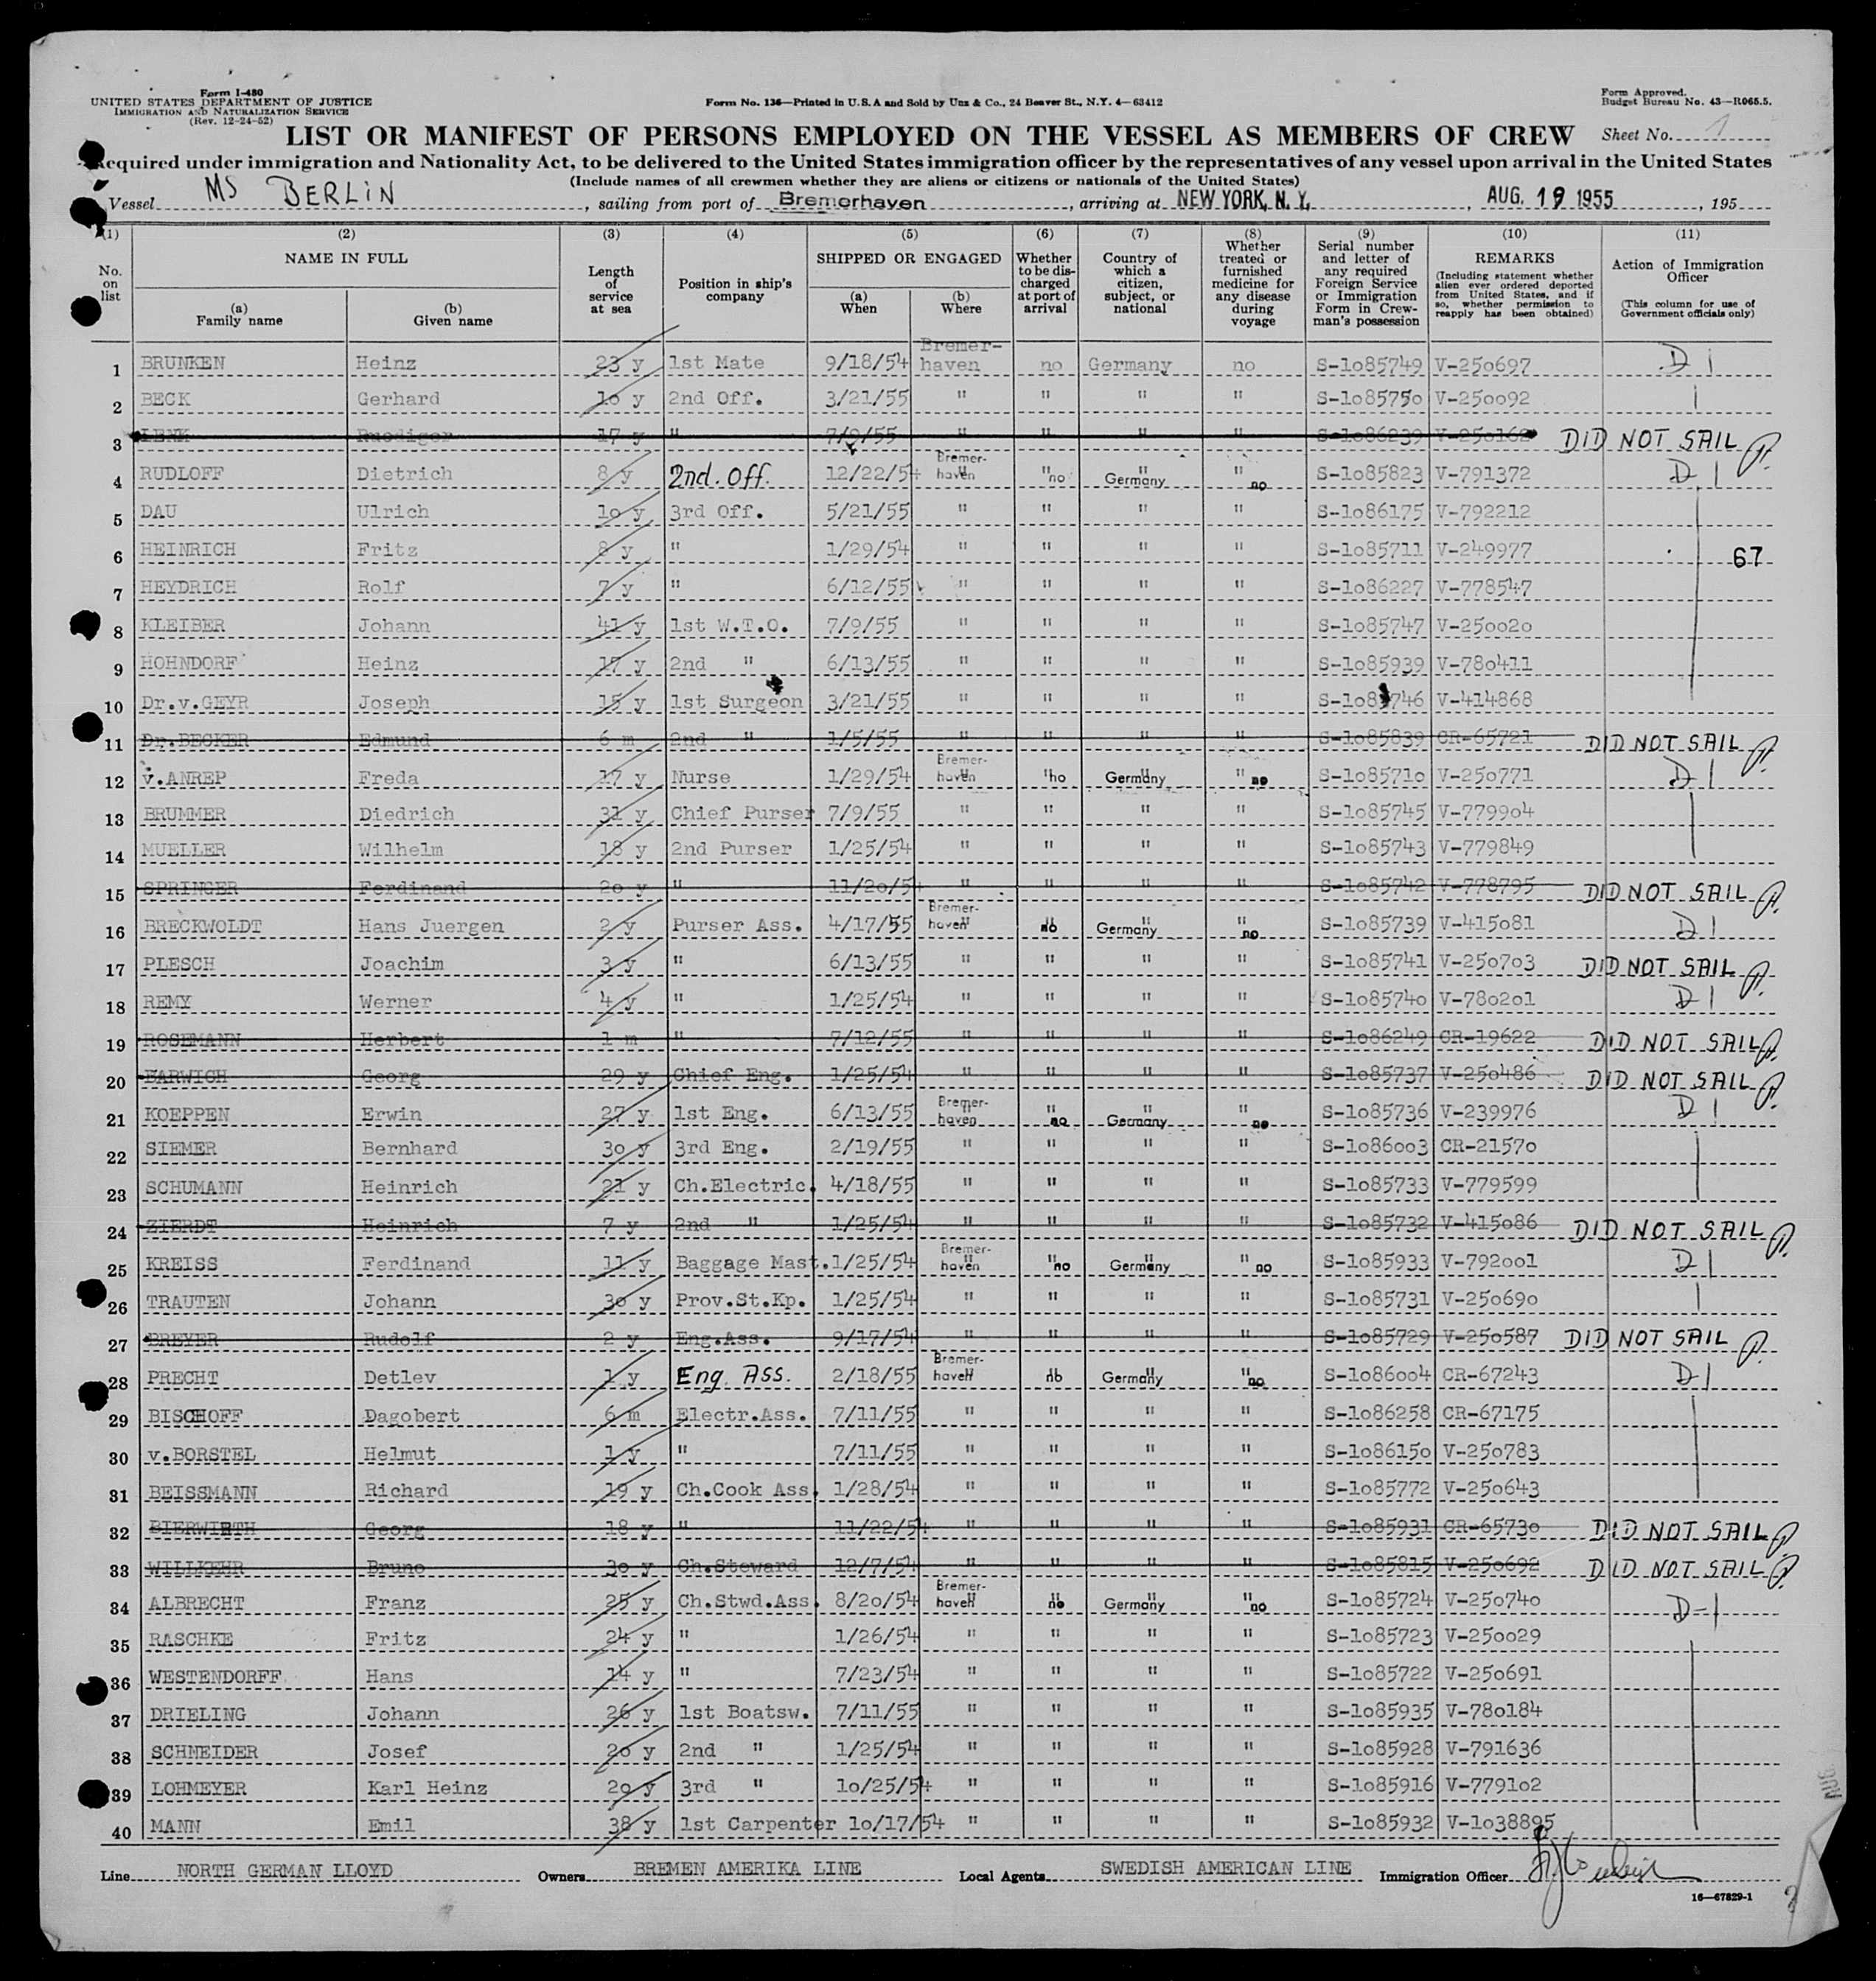 Form I-480
UNITED STATES DEPARTMENT OF JUSTICE
IMMIGRATION AND NATURALIZATION SERVICE
(Rev. 12-24-52)
Form No. 136—Printed in U.S.A and Sold by Unz & Co., 24 Beaver St., N.Y. 4—63412
Form Approved.
Budget Bureau No. 43—R065.5.
LIST OR MANIFEST OF PERSONS EMPLOYED ON THE VESSEL AS MEMBERS OF CREW
Sheet No. 1
equired under immigration and Nationality Act, to be delivered to the United States immigration officer by the representatives of any vessel upon arrival in the United States
(Include names of all crewmen whether they are aliens or citizens or nationals of the United States)
Vessel MS BERLIN, sailing from port of Bremerhaven, arriving at NEW YORK, N. Y., AUG. 19 1955, 195
(1) No. on list
(2) NAME IN FULL
(a) Family name
(b) Given name
(3) Length of service at sea
(4) Position in ship's company
(5) SHIPPED OR ENGAGED
(a) When
(b) Where
(6) Whether to be discharged at port of arrival
(7) Country of which a citizen, subject, or national
(8) Whether treated or furnished medicine for any disease during voyage
(9) Serial number and letter of any required Foreign Service or Immigration Form in Crewman's possession
(10) REMARKS (Including statement whether alien ever ordered deported from United States, and if so, whether permission to reapply has been obtained)
(11) Action of Immigration Officer (This column for use of Government officials only)
1 BRUNKEN Heinz 23 y 1st Mate 9/18/54 Bremerhaven no Germany no S-1o85749 V-25o697 D 1
2 BECK Gerhard 1o y 2nd Off. 3/21/55 " " " " S-1o8575o V-25oo92
3 LENK Ruediger 17 y " 7/9/55 " " " " S-1o86239 V-25o162 DID NOT SAIL
4 RUDLOFF Dietrich 8 y 2nd. Off. 12/22/54 Bremerhaven " no Germany " no S-1o85823 V-791372 D 1
5 DAU Ulrich 1o y 3rd Off. 5/21/55 " " " " S-1o86175 V-792212
6 HEINRICH Fritz 8 y " 1/29/54 " " " " S-1o85711 V-249977 67
7 HEYDRICH Rolf 7 y " 6/12/55 " " " " S-1o86227 V-778547
8 KLEIBER Johann 41 y 1st W.T.O. 7/9/55 " " " " S-1o85747 V-25oo2o
9 HOHNDORF Heinz 17 y 2nd " 6/13/55 " " " " S-1o85939 V-78o411
10 Dr.v.GEYR Joseph 15 y 1st Surgeon 3/21/55 " " " " S-1o85746 V-414868
11 Dr.BECKER Edmund 6 m 2nd " 1/5/55 " " " " S-1o85839 CR-65721 DID NOT SAIL
12 v.ANREP Freda 17 y Nurse 1/29/54 Bremerhaven " no Germany " no S-1o8571o V-25o771 D 1
13 BRUMMER Diedrich 31 y Chief Purser 7/9/55 " " " " S-1o85745 V-7799o4
14 MUELLER Wilhelm 18 y 2nd Purser 1/25/54 " " " " S-1o85743 V-779849
15 SPRINGER Ferdinand 2o y " 11/2o/54 " " " " S-1o85742 V-778795 DID NOT SAIL
16 BRECKWOLDT Hans Juergen 2 y Purser Ass. 4/17/55 Bremerhaven " no Germany " no S-1o85739 V-415o81 D 1
17 PLESCH Joachim 3 y " 6/13/55 " " " " S-1o85741 V-25o7o3 DID NOT SAIL
18 REMY Werner 4 y " 1/25/54 " " " " S-1o8574o V-78o2o1 D 1
19 ROSEMANN Herbert 1 m " 7/12/55 " " " " S-1o86249 CR-19622 DID NOT SAIL
20 BARWICH Georg 29 y Chief Eng. 1/25/54 " " " " S-1o85737 V-25o486 DID NOT SAIL
21 KOEPPEN Erwin 27 y 1st Eng. 6/13/55 Bremerhaven " no Germany " no S-1o85736 V-239976 D 1
22 SIEMER Bernhard 3o y 3rd Eng. 2/19/55 " " " " S-1o86oo3 CR-2157o
23 SCHUMANN Heinrich 21 y Ch.Electric. 4/18/55 " " " " S-1o85733 V-779599
24 ZIERDT Heinrich 7 y 2nd " 1/25/54 " " " " S-1o85732 V-415o86 DID NOT SAIL
25 KREISS Ferdinand 11 y Baggage Mast. 1/25/54 Bremerhaven " no Germany " no S-1o85933 V-792oo1 D 1
26 TRAUTEN Johann 3o y Prov.St.Kp. 1/25/54 " " " " S-1o85731 V-25o69o
27 BREYER Rudolf 2 y Eng.Ass. 9/17/54 " " " " S-1o85729 V-25o587 DID NOT SAIL
28 PRECHT Detlev 1 y Eng. Ass. 2/18/55 Bremerhaven " no Germany " no S-1o86oo4 CR-67243 D 1
29 BISCHOFF Dagobert 6 m Electr.Ass. 7/11/55 " " " " S-1o86258 CR-67175
30 v.BORSTEL Helmut 1 y " 7/11/55 " " " " S-1o8615o V-25o783
31 BEISSMANN Richard 19 y Ch.Cook Ass. 1/28/54 " " " " S-1o85772 V-25o643
32 BIERWIRTH Georg 18 y " 11/22/54 " " " " S-1o85931 CR-6573o DID NOT SAIL
33 WILLKEHR Bruno 3o y Ch.Steward 12/7/54 " " " " S-1o85815 V-25o692 DID NOT SAIL
34 ALBRECHT Franz 25 y Ch.Stwd.Ass. 8/2o/54 Bremerhaven " no Germany " no S-1o85724 V-25o74o D-1
35 RASCHKE Fritz 24 y " 1/26/54 " " " " S-1o85723 V-25oo29
36 WESTENDORFF Hans 14 y " 7/23/54 " " " " S-1o85722 V-25o691
37 DRIELING Johann 26 y 1st Boatsw. 7/11/55 " " " " S-1o85935 V-78o184
38 SCHNEIDER Josef 2o y 2nd " 1/25/54 " " " " S-1o85928 V-791636
39 LOHMEYER Karl Heinz 29 y 3rd " 1o/25/54 " " " " S-1o85916 V-7791o2
40 MANN Emil 38 y 1st Carpenter 1o/17/54 " " " " S-1o85932 V-1o38895
Line NORTH GERMAN LLOYD Owners BREMEN AMERIKA LINE Local Agents SWEDISH AMERICAN LINE Immigration Officer
16—67829-1